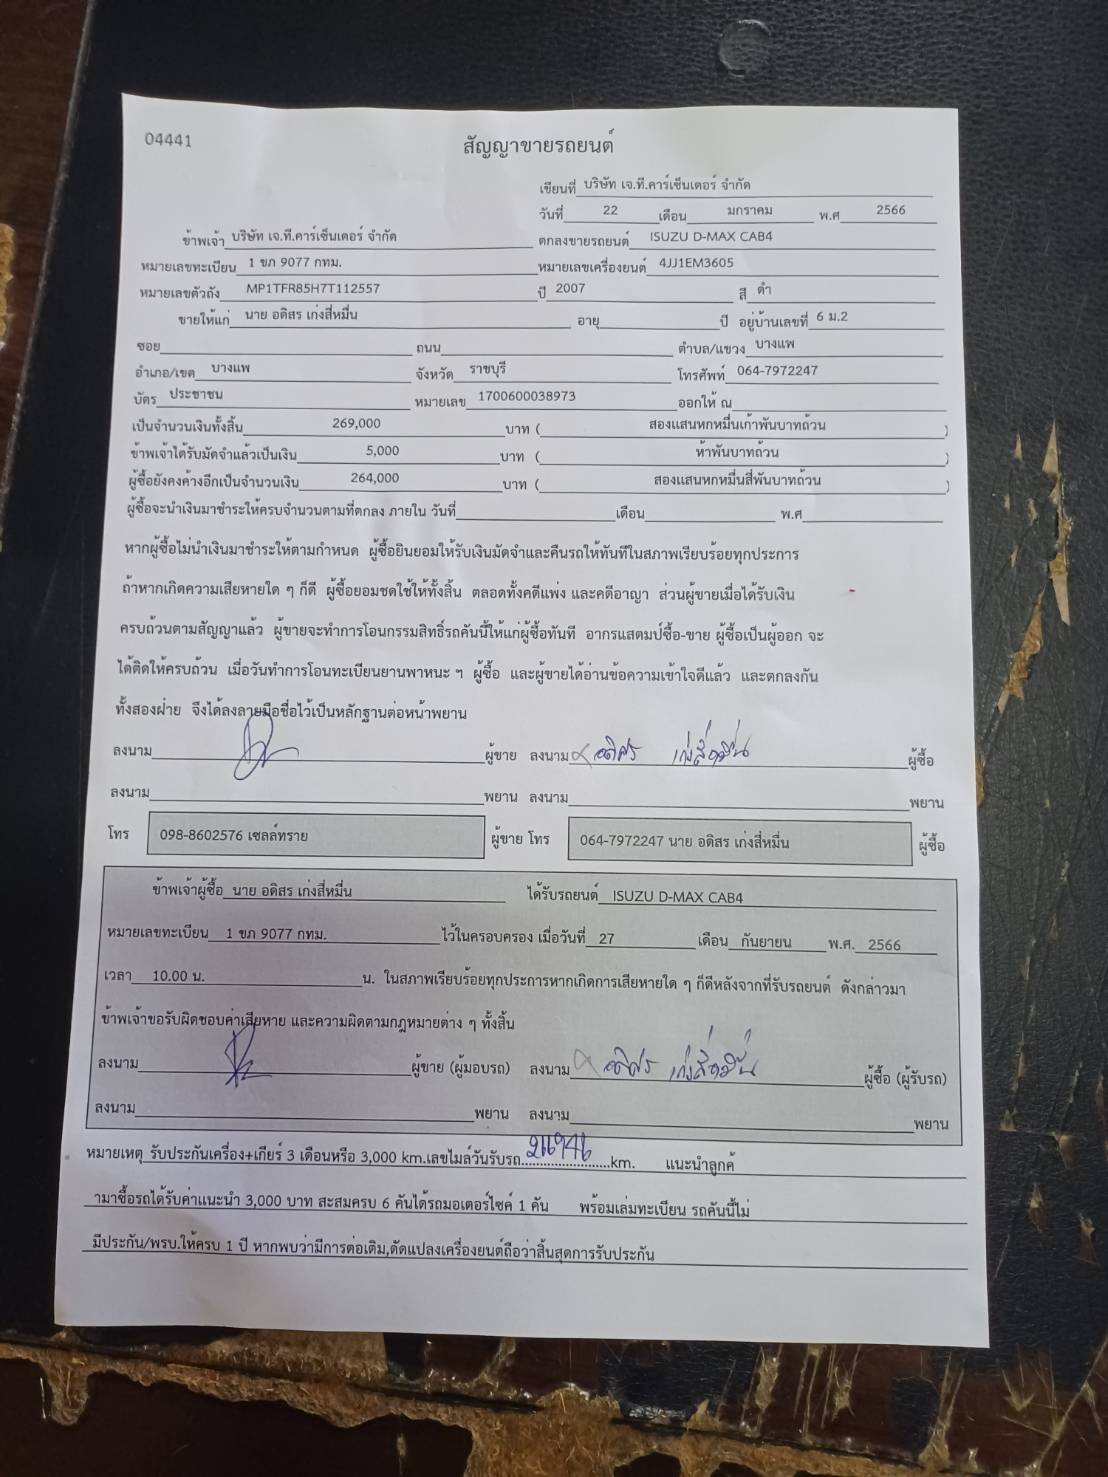 04441
สัญญาขายรถยนต์
เขียนที่ บริษัท เจ.ที.คาร์เซ็นเตอร์ จำกัด
วันที่ 22 เดือน มกราคม พ.ศ 2566
ข้าพเจ้า บริษัท เจ.ที.คาร์เซ็นเตอร์ จำกัด ตกลงขายรถยนต์ ISUZU D-MAX CAB4
หมายเลขทะเบียน 1 ขภ 9077 กทม. หมายเลขเครื่องยนต์ 4JJ1EM3605
หมายเลขตัวถัง MP1TFR85H7T112557 ปี 2007 สี ดำ
ขายให้แก่ นาย อดิสร เก่งสี่หมื่น อายุ ปี อยู่บ้านเลขที่ 6 ม.2
ซอย ถนน ตำบล/แขวง บางแพ
อำเภอ/เขต บางแพ จังหวัด ราชบุรี โทรศัพท์ 064-7972247
บัตร ประชาชน หมายเลข 1700600038973 ออกให้ ณ
เป็นจำนวนเงินทั้งสิ้น 269,000 บาท ( สองแสนหกหมื่นเก้าพันบาทถ้วน )
ข้าพเจ้าได้รับมัดจำแล้วเป็นเงิน 5,000 บาท ( ห้าพันบาทถ้วน )
ผู้ซื้อยังคงค้างอีกเป็นจำนวนเงิน 264,000 บาท ( สองแสนหกหมื่นสี่พันบาทถ้วน )
ผู้ซื้อจะนำเงินมาชำระให้ครบจำนวนตามที่ตกลง ภายใน วันที่ เดือน พ.ศ
หากผู้ซื้อไม่นำเงินมาชำระให้ตามกำหนด ผู้ซื้อยินยอมให้รับเงินมัดจำและคืนรถให้ทันทีในสภาพเรียบร้อยทุกประการ
ถ้าหากเกิดความเสียหายใด ๆ ก็ดี ผู้ซื้อยอมชดใช้ให้ทั้งสิ้น ตลอดทั้งคดีแพ่ง และคดีอาญา ส่วนผู้ขายเมื่อได้รับเงิน
ครบถ้วนตามสัญญาแล้ว ผู้ขายจะทำการโอนกรรมสิทธิ์รถคันนี้ให้แก่ผู้ซื้อทันที อากรแสตมป์ซื้อ-ขาย ผู้ซื้อเป็นผู้ออก จะ
ได้ติดให้ครบถ้วน เมื่อวันทำการโอนทะเบียนยานพาหนะ ฯ ผู้ซื้อ และผู้ขายได้อ่านข้อความเข้าใจดีแล้ว และตกลงกัน
ทั้งสองฝ่าย จึงได้ลงลายมือชื่อไว้เป็นหลักฐานต่อหน้าพยาน
ลงนาม ผู้ขาย ลงนาม อดิศร เก่งสี่หมื่น ผู้ซื้อ
ลงนาม พยาน ลงนาม พยาน
โทร 098-8602576 เซลล์ทราย ผู้ขาย โทร 064-7972247 นาย อดิสร เก่งสี่หมื่น ผู้ซื้อ
ข้าพเจ้าผู้ซื้อ นาย อดิสร เก่งสี่หมื่น ได้รับรถยนต์ ISUZU D-MAX CAB4
หมายเลขทะเบียน 1 ขภ 9077 กทม. ไว้ในครอบครอง เมื่อวันที่ 27 เดือน กันยายน พ.ศ. 2566
เวลา 10.00 น. น. ในสภาพเรียบร้อยทุกประการหากเกิดการเสียหายใด ๆ ก็ดีหลังจากที่รับรถยนต์ ดังกล่าวมา
ข้าพเจ้าขอรับผิดชอบค่าเสียหาย และความผิดตามกฎหมายต่าง ๆ ทั้งสิ้น
ลงนาม ผู้ขาย (ผู้มอบรถ) ลงนาม อดิศร เก่งสี่หมื่น ผู้ซื้อ (ผู้รับรถ)
ลงนาม พยาน ลงนาม พยาน
หมายเหตุ รับประกันเครื่อง+เกียร์ 3 เดือนหรือ 3,000 km.เลขไมล์วันรับรถ........................km. แนะนำลูกค้
ามาซื้อรถได้รับค่าแนะนำ 3,000 บาท สะสมครบ 6 คันได้รถมอเตอร์ไซค์ 1 คัน พร้อมเล่มทะเบียน รถคันนี้ไม่
มีประกัน/พรบ.ให้ครบ 1 ปี หากพบว่ามีการต่อเติม,ดัดแปลงเครื่องยนต์ถือว่าสิ้นสุดการรับประกัน